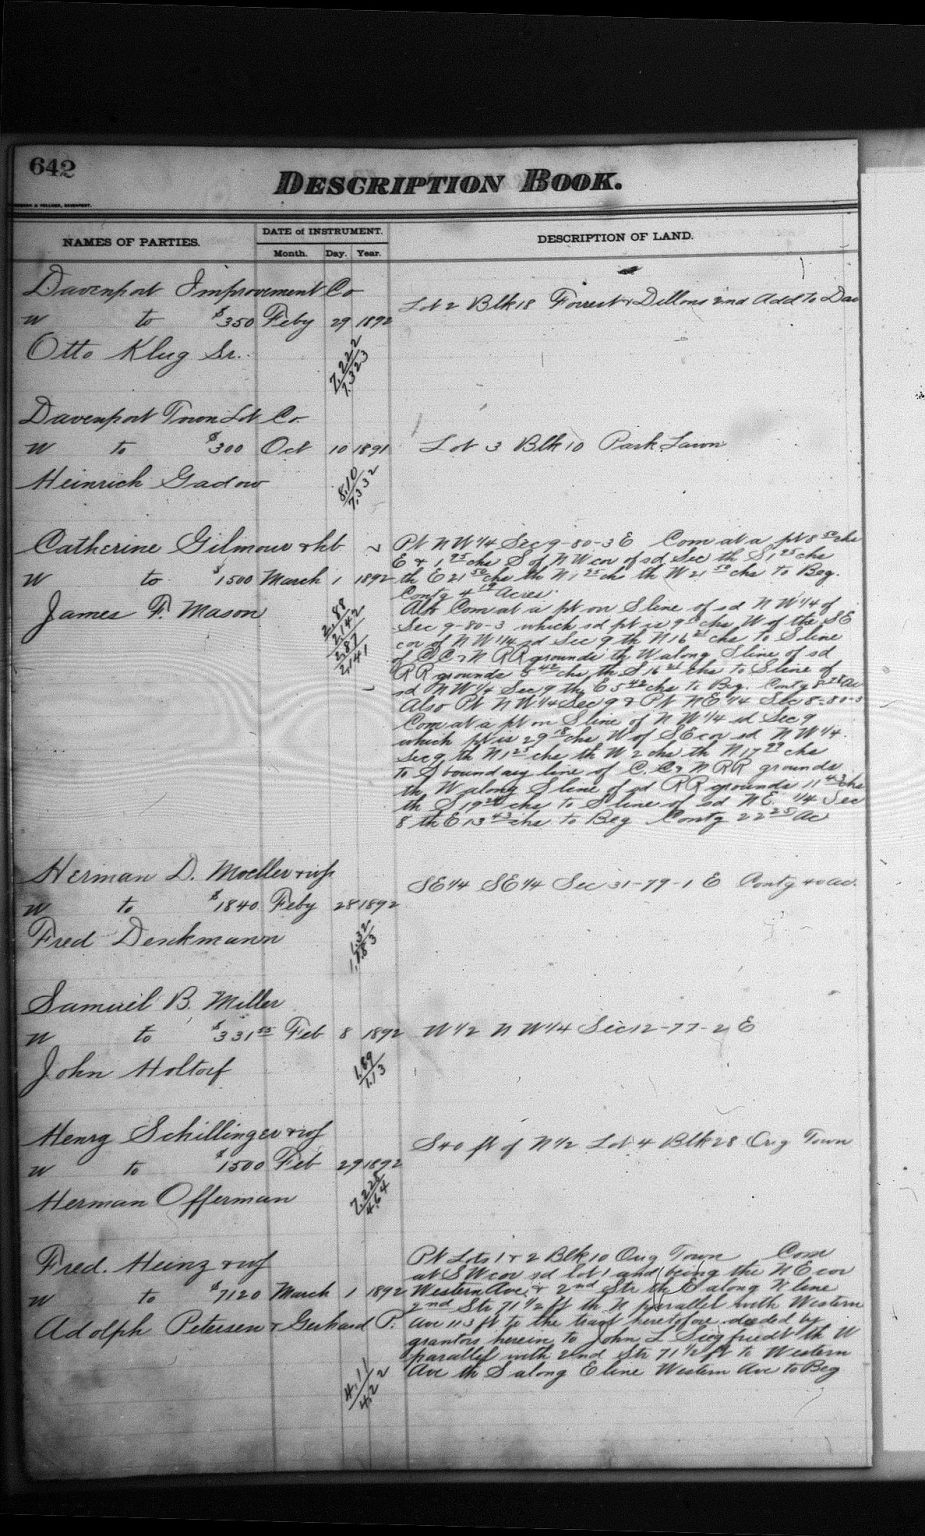 642
DESCRIPTION BOOK.
NAMES OF PARTIES.
DATE of INSTRUMENT.
Month. Day. Year.
DESCRIPTION OF LAND.
Davenport Improvement Co
W to $350 Feby 29 1892
Lot 2 Blk 18 Forrest & Dillons 2nd Add to Dav
Otto Klug Sr.
7.222
7.323
Davenport Town Lot Co.
W to $300 Oct 10 1891 Lot 3 Blk 10 Park Lawn
Heinrich Gadow
8.10
7.332
Catherine Gilmour & hb
W to $1500 March 1 1892
James F. Mason
2.88
2.142
2.87
2.141
Pt NW1/4 Sec 9-80-3 E Com at a pt 8 50 chs
E & 1 25 chs S of NW cor of sd Sec th S 1 25 chs
th E 21 50 chs th N 1 25 chs th W 21 50 chs to Beg.
Contg 4 Acres.
Als Com at a pt on S line of sd NW1/4 of
Sec 9-80-3 which sd pt is 9 chs W of the SE
cor of NW1/4 sd Sec 9 th N 16 chs to S line
of C.C. & N RR grounds th W along S line of sd
RR grounds 5 42 chs th S 16 chs to S line of
sd NW1/4 Sec 9 th E 5 42 chs to Beg. Contg 8 Ac
Also Pt NW1/4 Sec 9 & Pt NE1/4 Sec 8-80-3
Com at a pt on S line of NW1/4 sd Sec 9
which pt is 29 18 chs W of SE cor sd NW1/4.
Sec 9 th N 1 25 chs th W 2 chs th N 17 chs
to S boundary line of C. C & N RR grounds
th W along S line of sd RR grounds 11 43 chs
th S 19 chs to S line of sd NE 1/4 Sec
8 th E 13 43 chs to Beg Contg 22 25 Ac
Herman D. Moeller & wife
W to $1840 Feby 28 1892
SE1/4 SE1/4 Sec 31-79-1 E Contg 40 ac.
Fred Denkmann
1.32
1.183
Samuel B. Miller
W to $331 Feb 8 1892 W1/2 NW1/4 Sec 12-77-2 E
John Holtorf
1.89
1.13
Henry Schillinger & wf
W to $1500 Feb 29 1892
S 40 ft of N1/2 Lot 4 Blk 28 Orig Town
Herman Offerman
7.225
4.64
Fred. Heinz & wf
W to $7120 March 1 1892
Adolph Petersen & Gerhard P.
4.11
4.22
Pt Lots 1 & 2 Blk 10 Orig Town Com
at SW cor sd lot 1 and being the NE cor
Western Ave. & 2nd Str th E along N line
2nd Str 71 1/2 ft th N parallel with Western
Ave 113 ft to the tract heretofore deeded by
grantors herein to John L Siegfriedt th W
parallel with 2nd Str 71 1/2 ft to Western
Ave th S along E line Western Ave to Beg